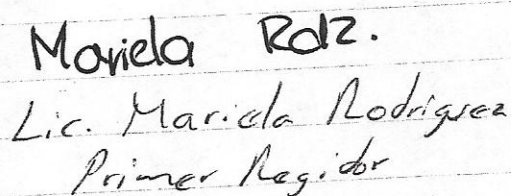 Mariela Rdz.
Lic. Mariela Rodriguez
Primer Regidor